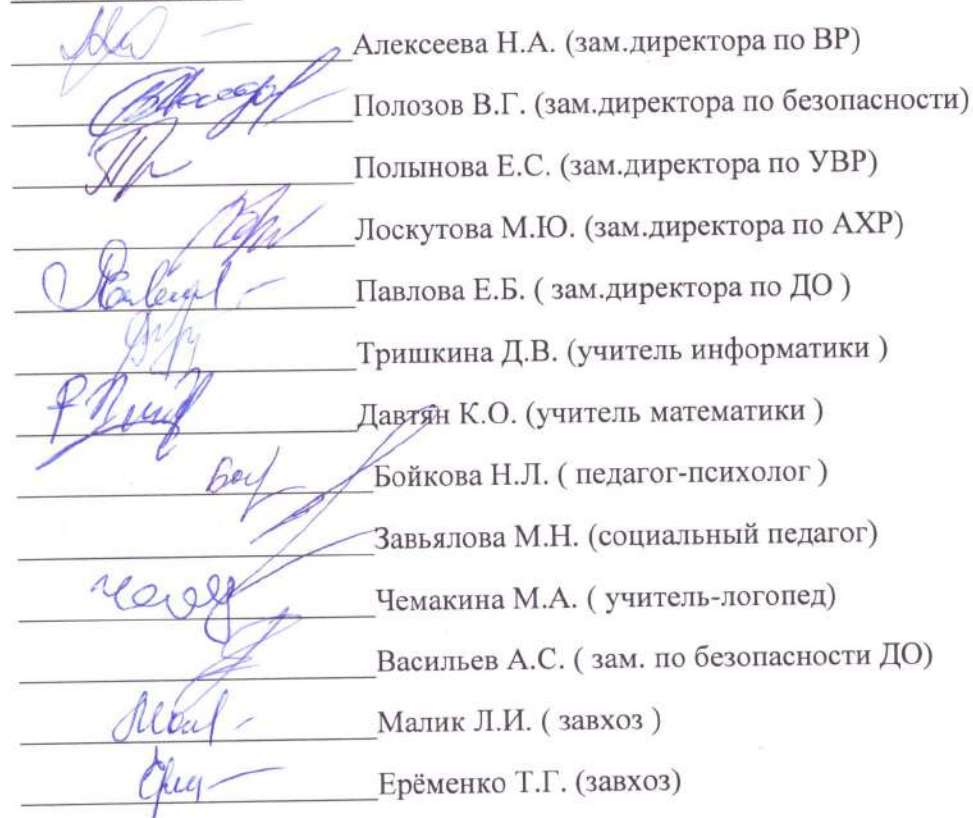 Алексеева Н.А. (зам.директора по ВР)
Полозов В.Г. (зам.директора по безопасности)
Полынова Е.С. (зам.директора по УВР)
Лоскутова М.Ю. (зам.директора по АХР)
Павлова Е.Б. ( зам.директора по ДО )
Тришкина Д.В. (учитель информатики )
Давтян К.О. (учитель математики )
Бойкова Н.Л. ( педагог-психолог )
Завьялова М.Н. (социальный педагог)
Чемакина М.А. ( учитель-логопед)
Васильев А.С. ( зам. по безопасности ДО)
Малик Л.И. ( завхоз )
Ерёменко Т.Г. (завхоз)